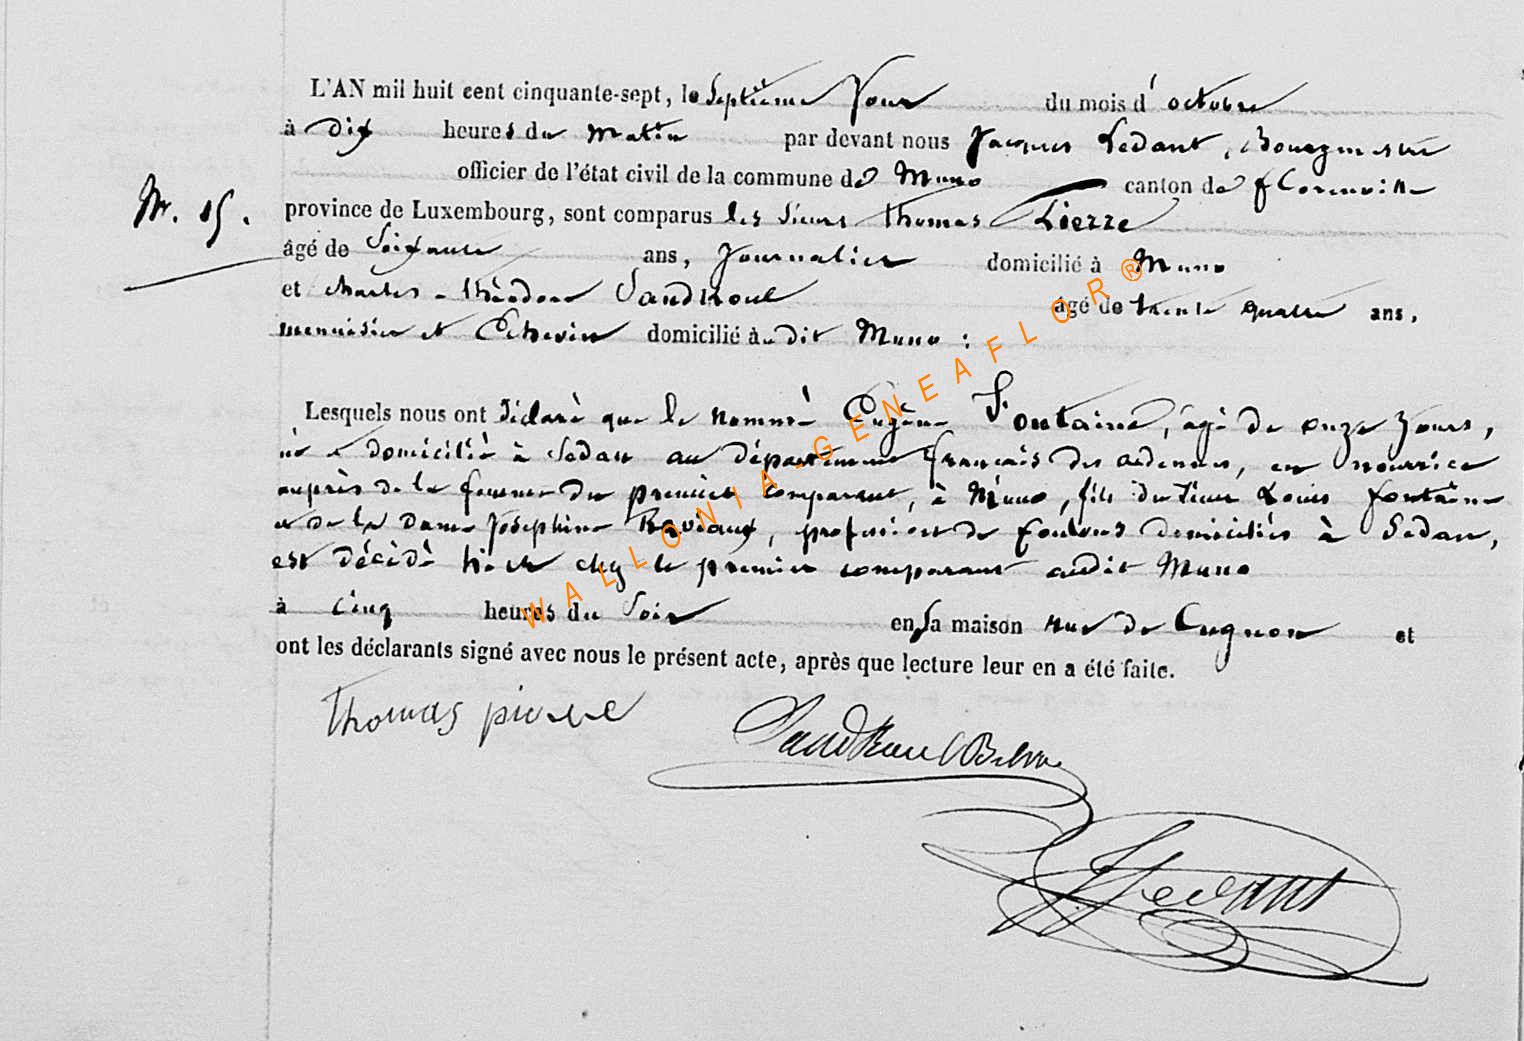 L'AN mil huit cent cinquante-sept, le Septième Jour du mois d'octobre
à dix heures du Matin par devant nous Jacques Ledant, Bourgmestre
officier de l'état civil de la commune de Muno canton de Florenville
Nr. 15.
province de Luxembourg, sont comparus les Sieurs Thomas Pierre
âgé de Soixante ans, Journalier domicilié à Muno
et charles - théodore Sandkoul âgé de trente quatre ans,
menuisier et Echevin domicilié audit Muno :
Lesquels nous ont déclaré que le nommé Eugène Fontaine, âgé de onze Jours,
né et domicilié à Sedan au département français des ardennes, en nourrice
auprès de la femme du premier comparant, à Muno, fils du Sieur Louis Fontaine
et de la dame Joséphine, profession de foulons domiciliés à Sedan,
est décédé hier chez le premier comparant audit Muno
à cinq heures du Soir en sa maison rue de Cugnon et
ont les déclarants signé avec nous le présent acte, après que lecture leur en a été faite.
Thomas pierre
Sandkoul
Ledant
WALLONIA-GENEAFLOR®